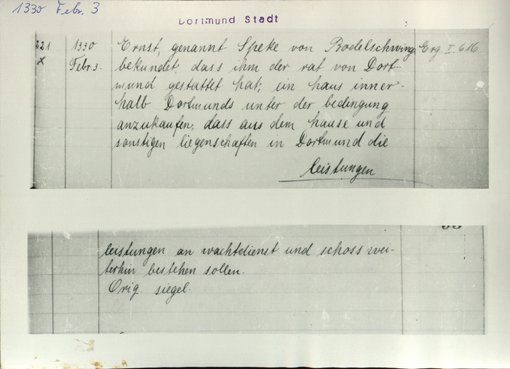 1330 Febr. 3
Dortmund Stadt
221 1330 Ernst, genannt Speke von Bodelschwing Erg. I. 616
x Febr. 3. bekundet, dass ihm der rat von Dort-
mund gestattet hat, ein haus inner-
halb Dortmunds unter der bedingung
anzukaufen, dass aus dem hause und
sonstigen liegenschaften in Dortmund die
leistungen
leistungen an wachtdienst und schoss wei-
terhin bestehen sollen.
Orig. siegel.